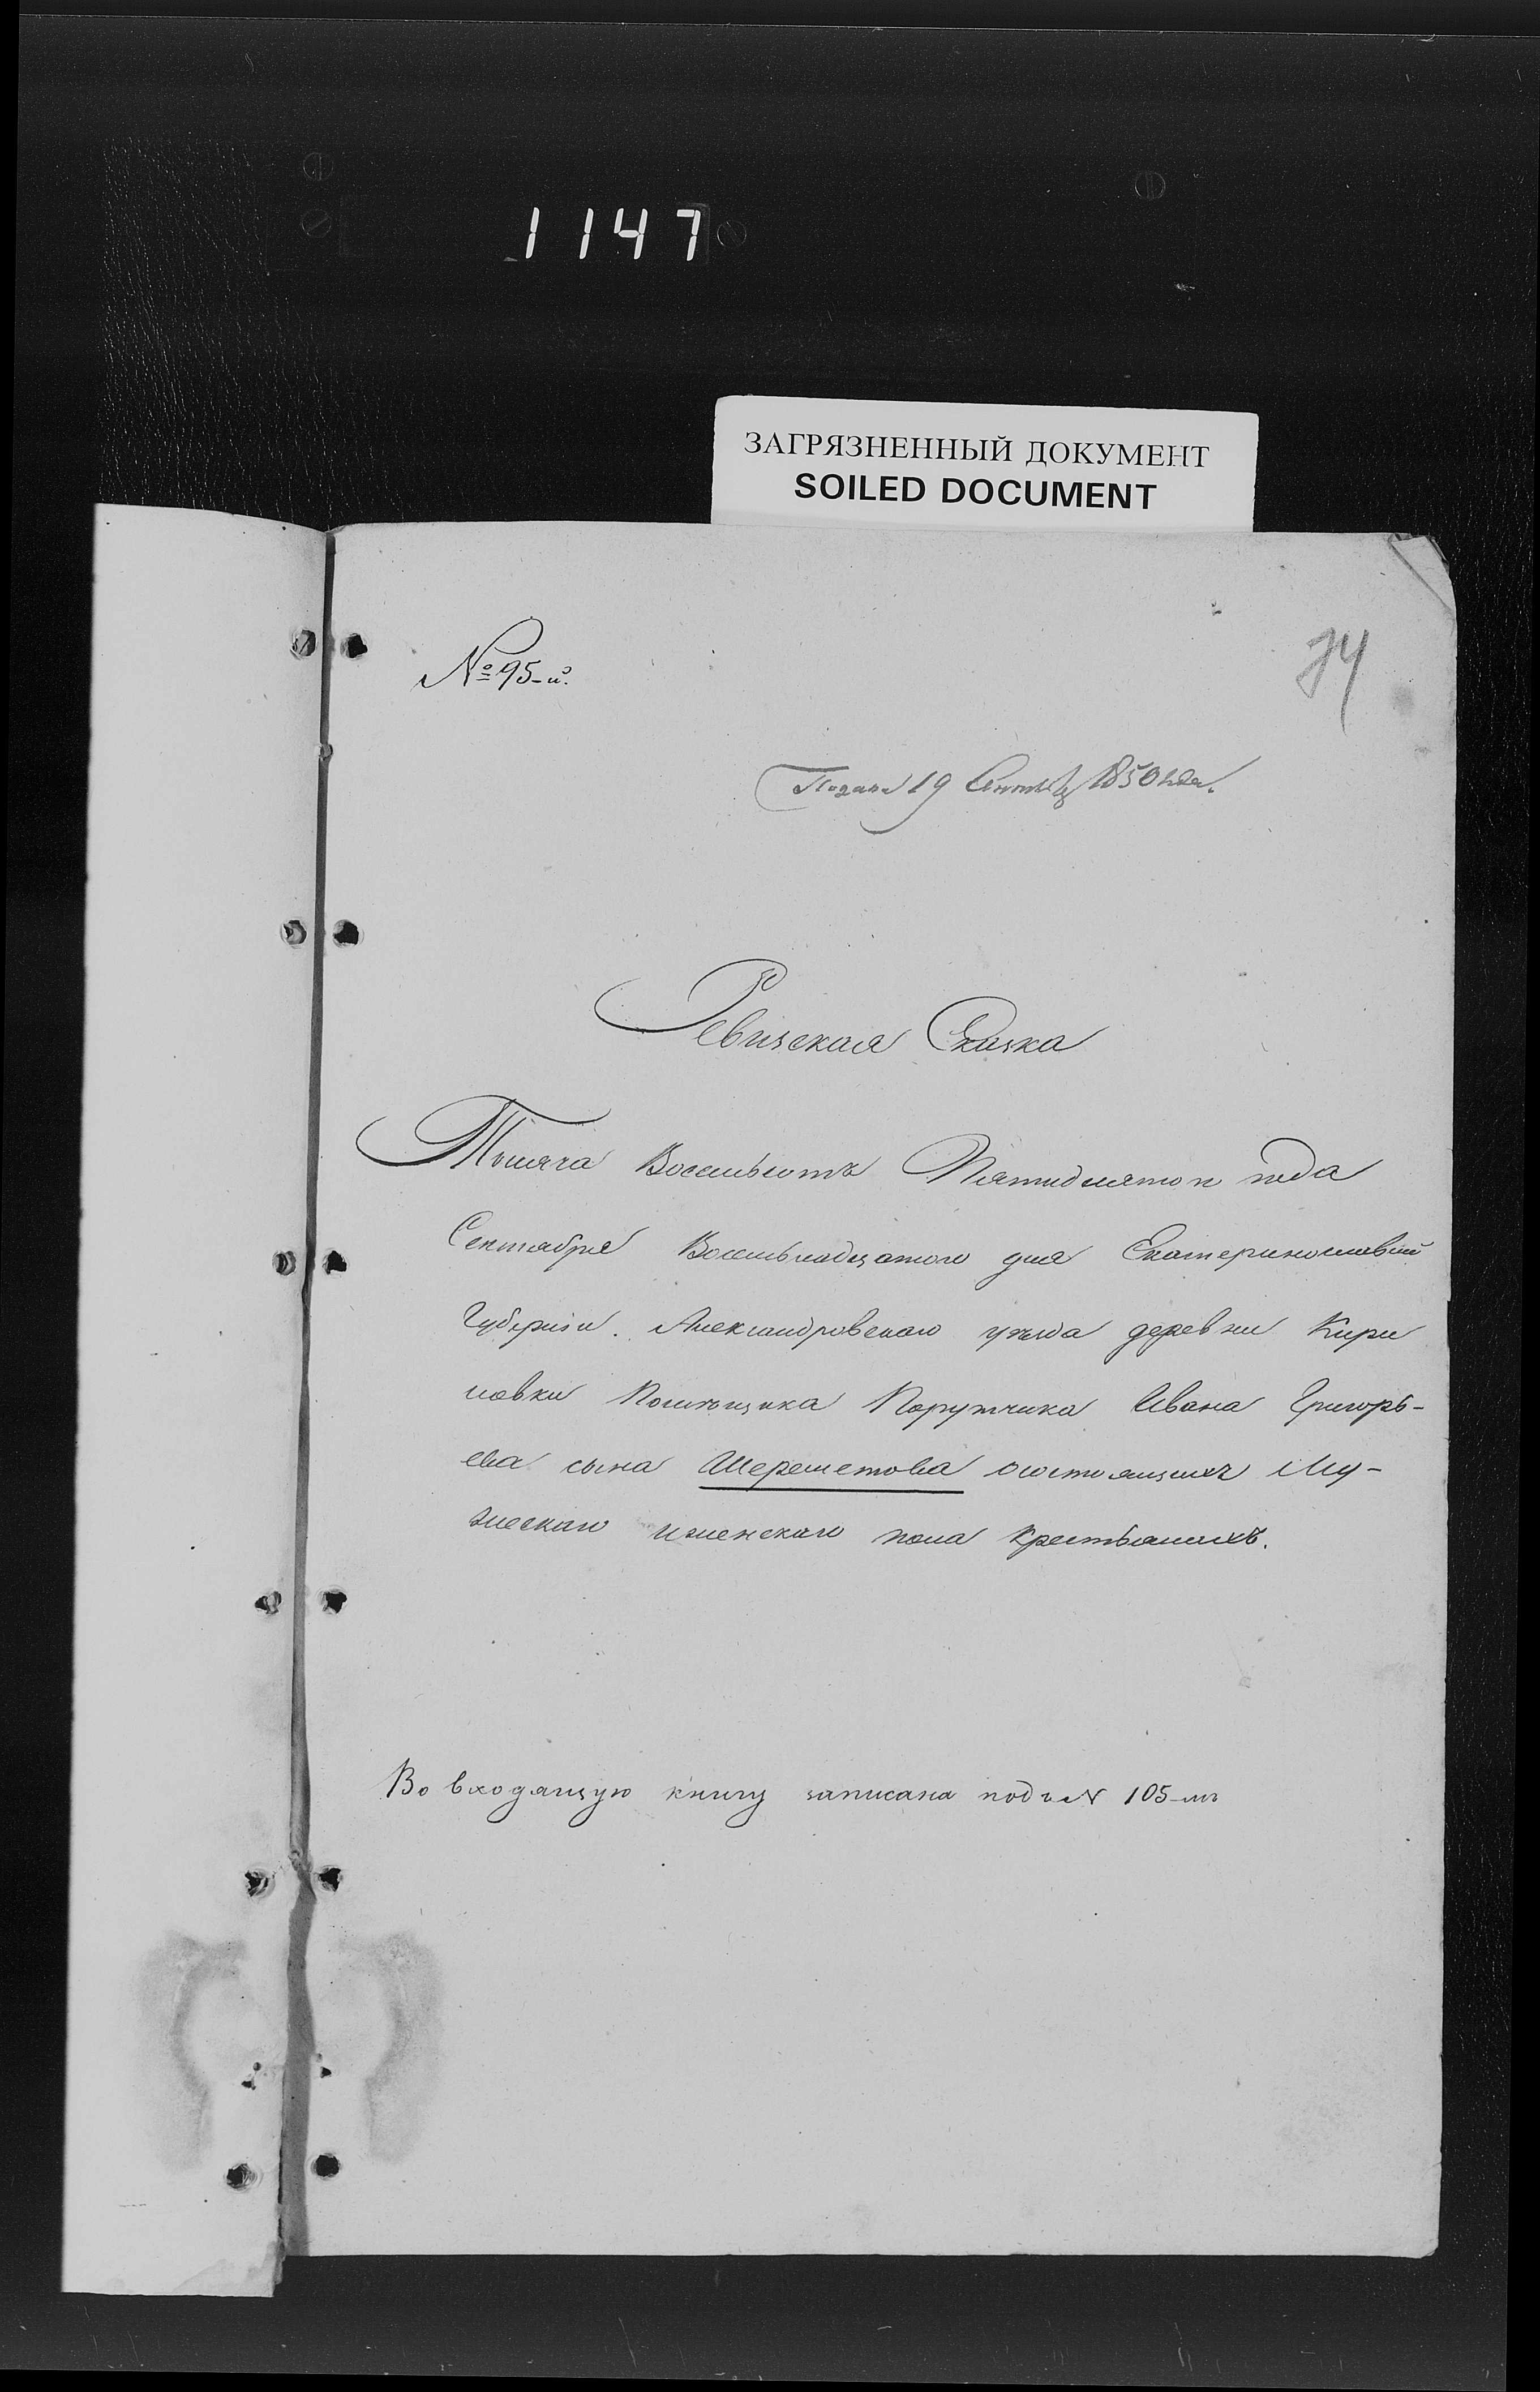 1147
ЗАГРЯЗНЕННЫЙ ДОКУМЕНТ
SOILED DOCUMENT
№ 95-й.
74
Подана 19 Сентяб 1850 года.
Ревизская Сказка
Тысяча Восемьсотъ Пятидесятого года
Сентября Восемьнадцатого дня Екатеринославской
Губернiи. Александровскаго уѣзда деревни Кири
ловки Помѣщика Порутчика Ивана Григорь-
ева сына Шереметова состоящихъ Му-
жескаго иженскаго пола Крестьянахъ.
Во входящую книгу записана подъ № 105-мъ